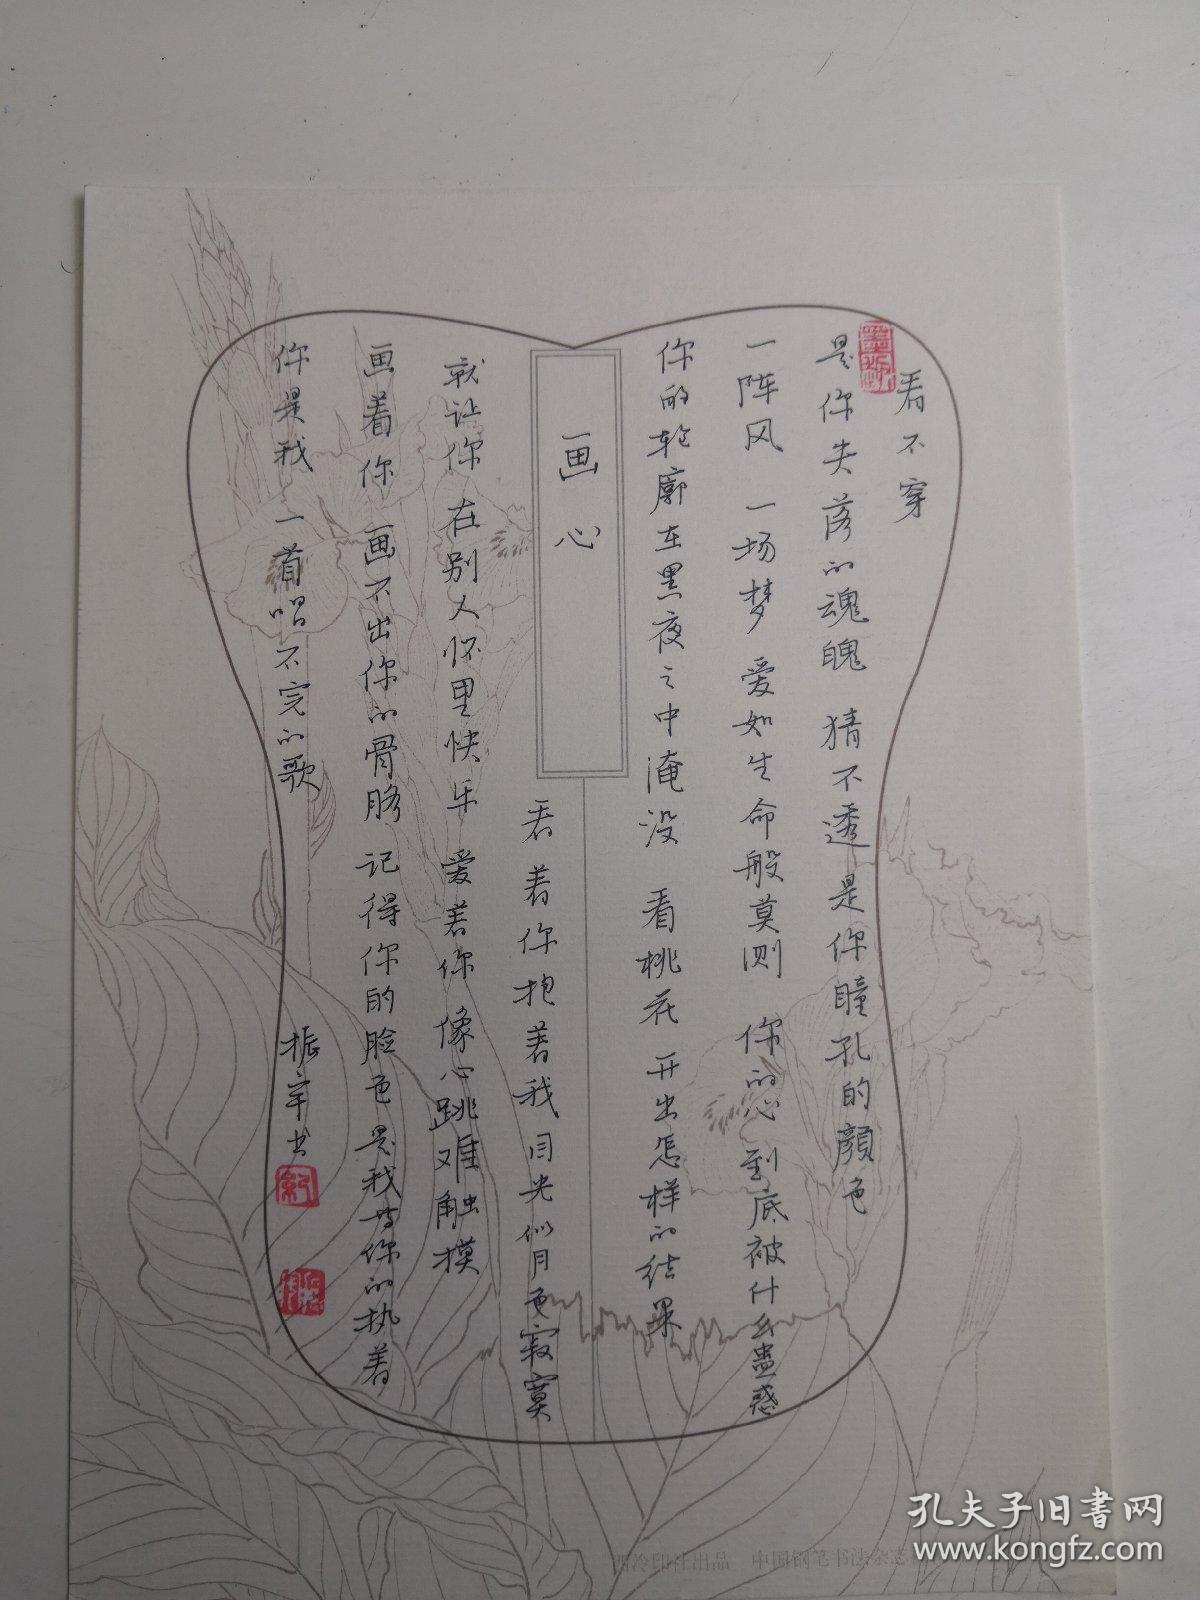 看不穿
是你失落的魂魄 猜不透 是你瞳孔的颜色
一阵风 一场梦 爱如生命般莫测 你的心到底被什么蛊惑
你的轮廓在黑夜之中淹没 看桃花 开出怎样的结果
画心
看着你抱着我目光似月色寂寞
就让你 在别人怀里快乐 爱着你 像心跳难触摸
画着你 画不出你的骨骼 记得你的脸色 是我等你的执着
你是我 一首唱不完的歌
振宇书
西泠印社出品 中国钢笔书法杂志
孔夫子旧书网
www.kongfz.com